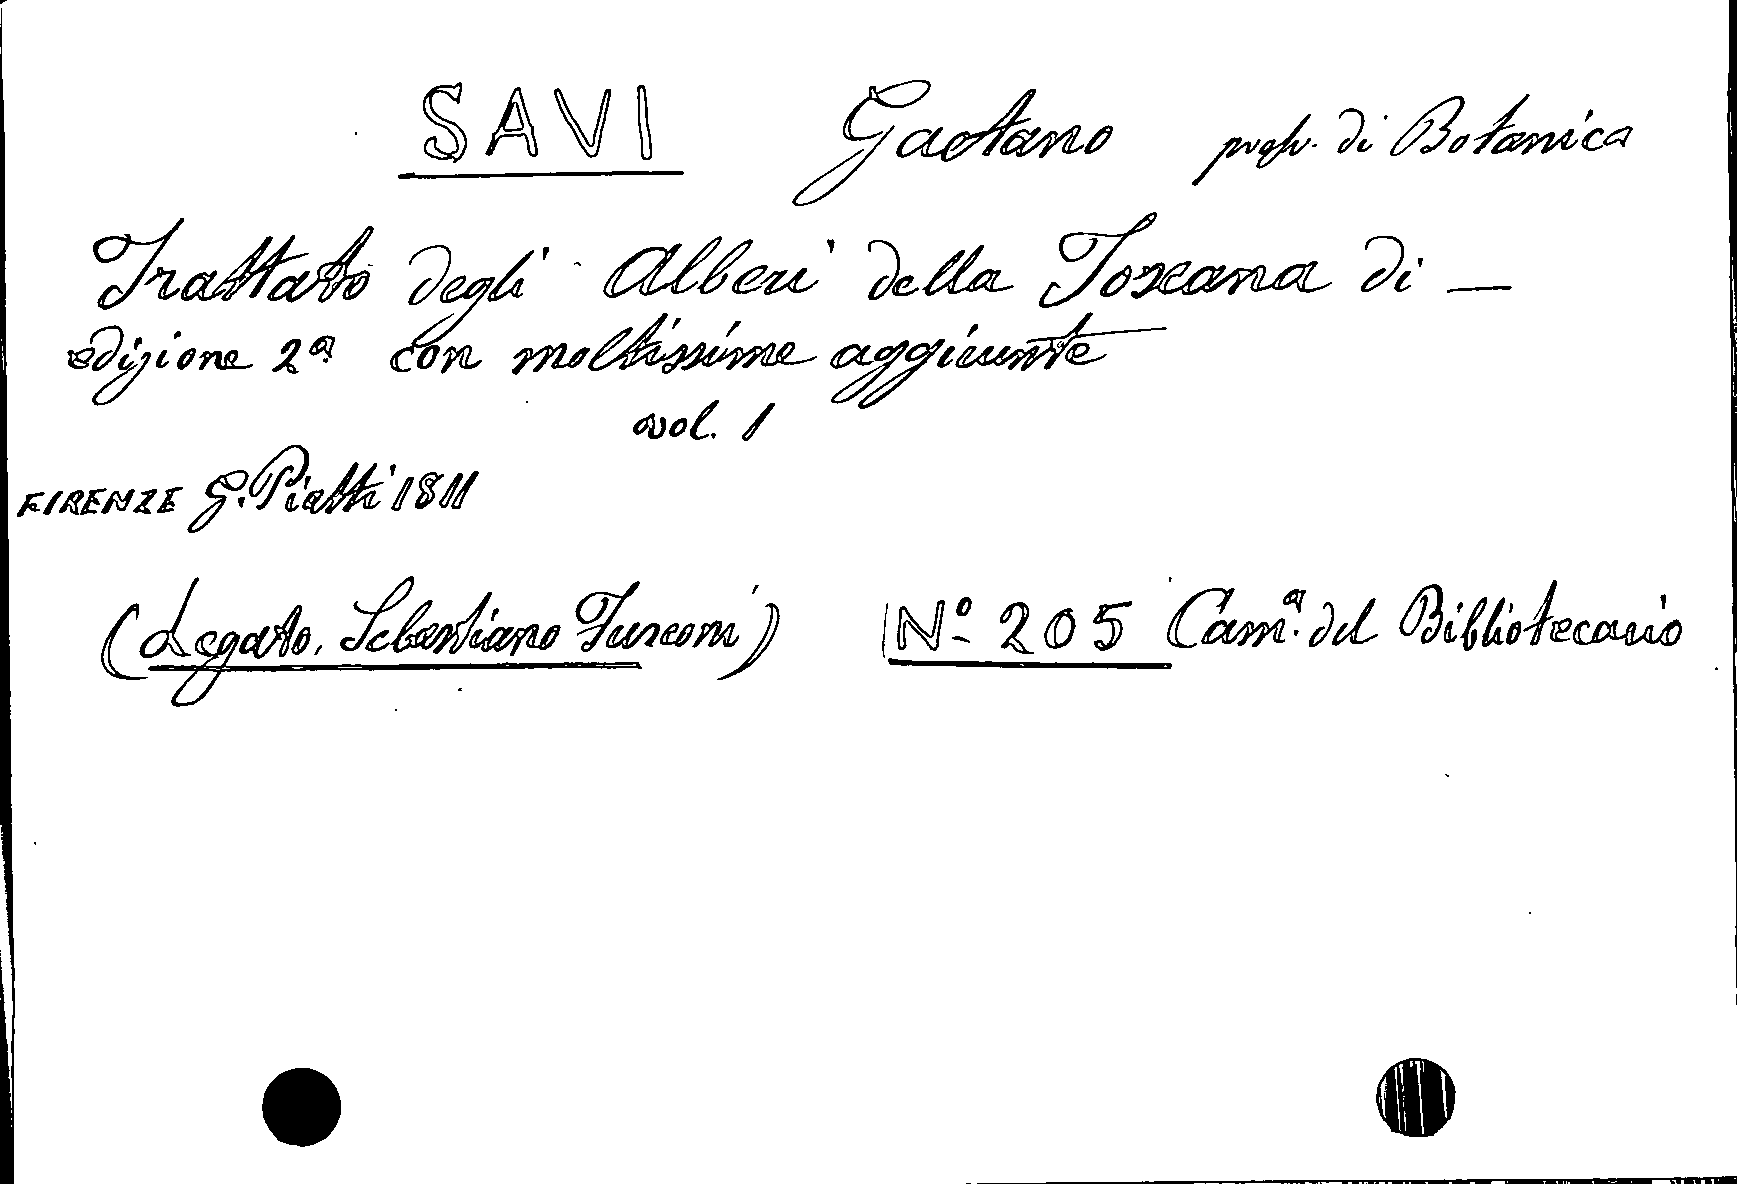 SAVI Gaetano profr. di Botanica
Trattato degli Alberi della Toscana di —
edizione 2ª con moltissime aggiunte
vol. 1
FIRENZE G. Piatti 1811
(Legato. Sebastiano Fusconi) Nº 205 Camª. del Bibliotecario